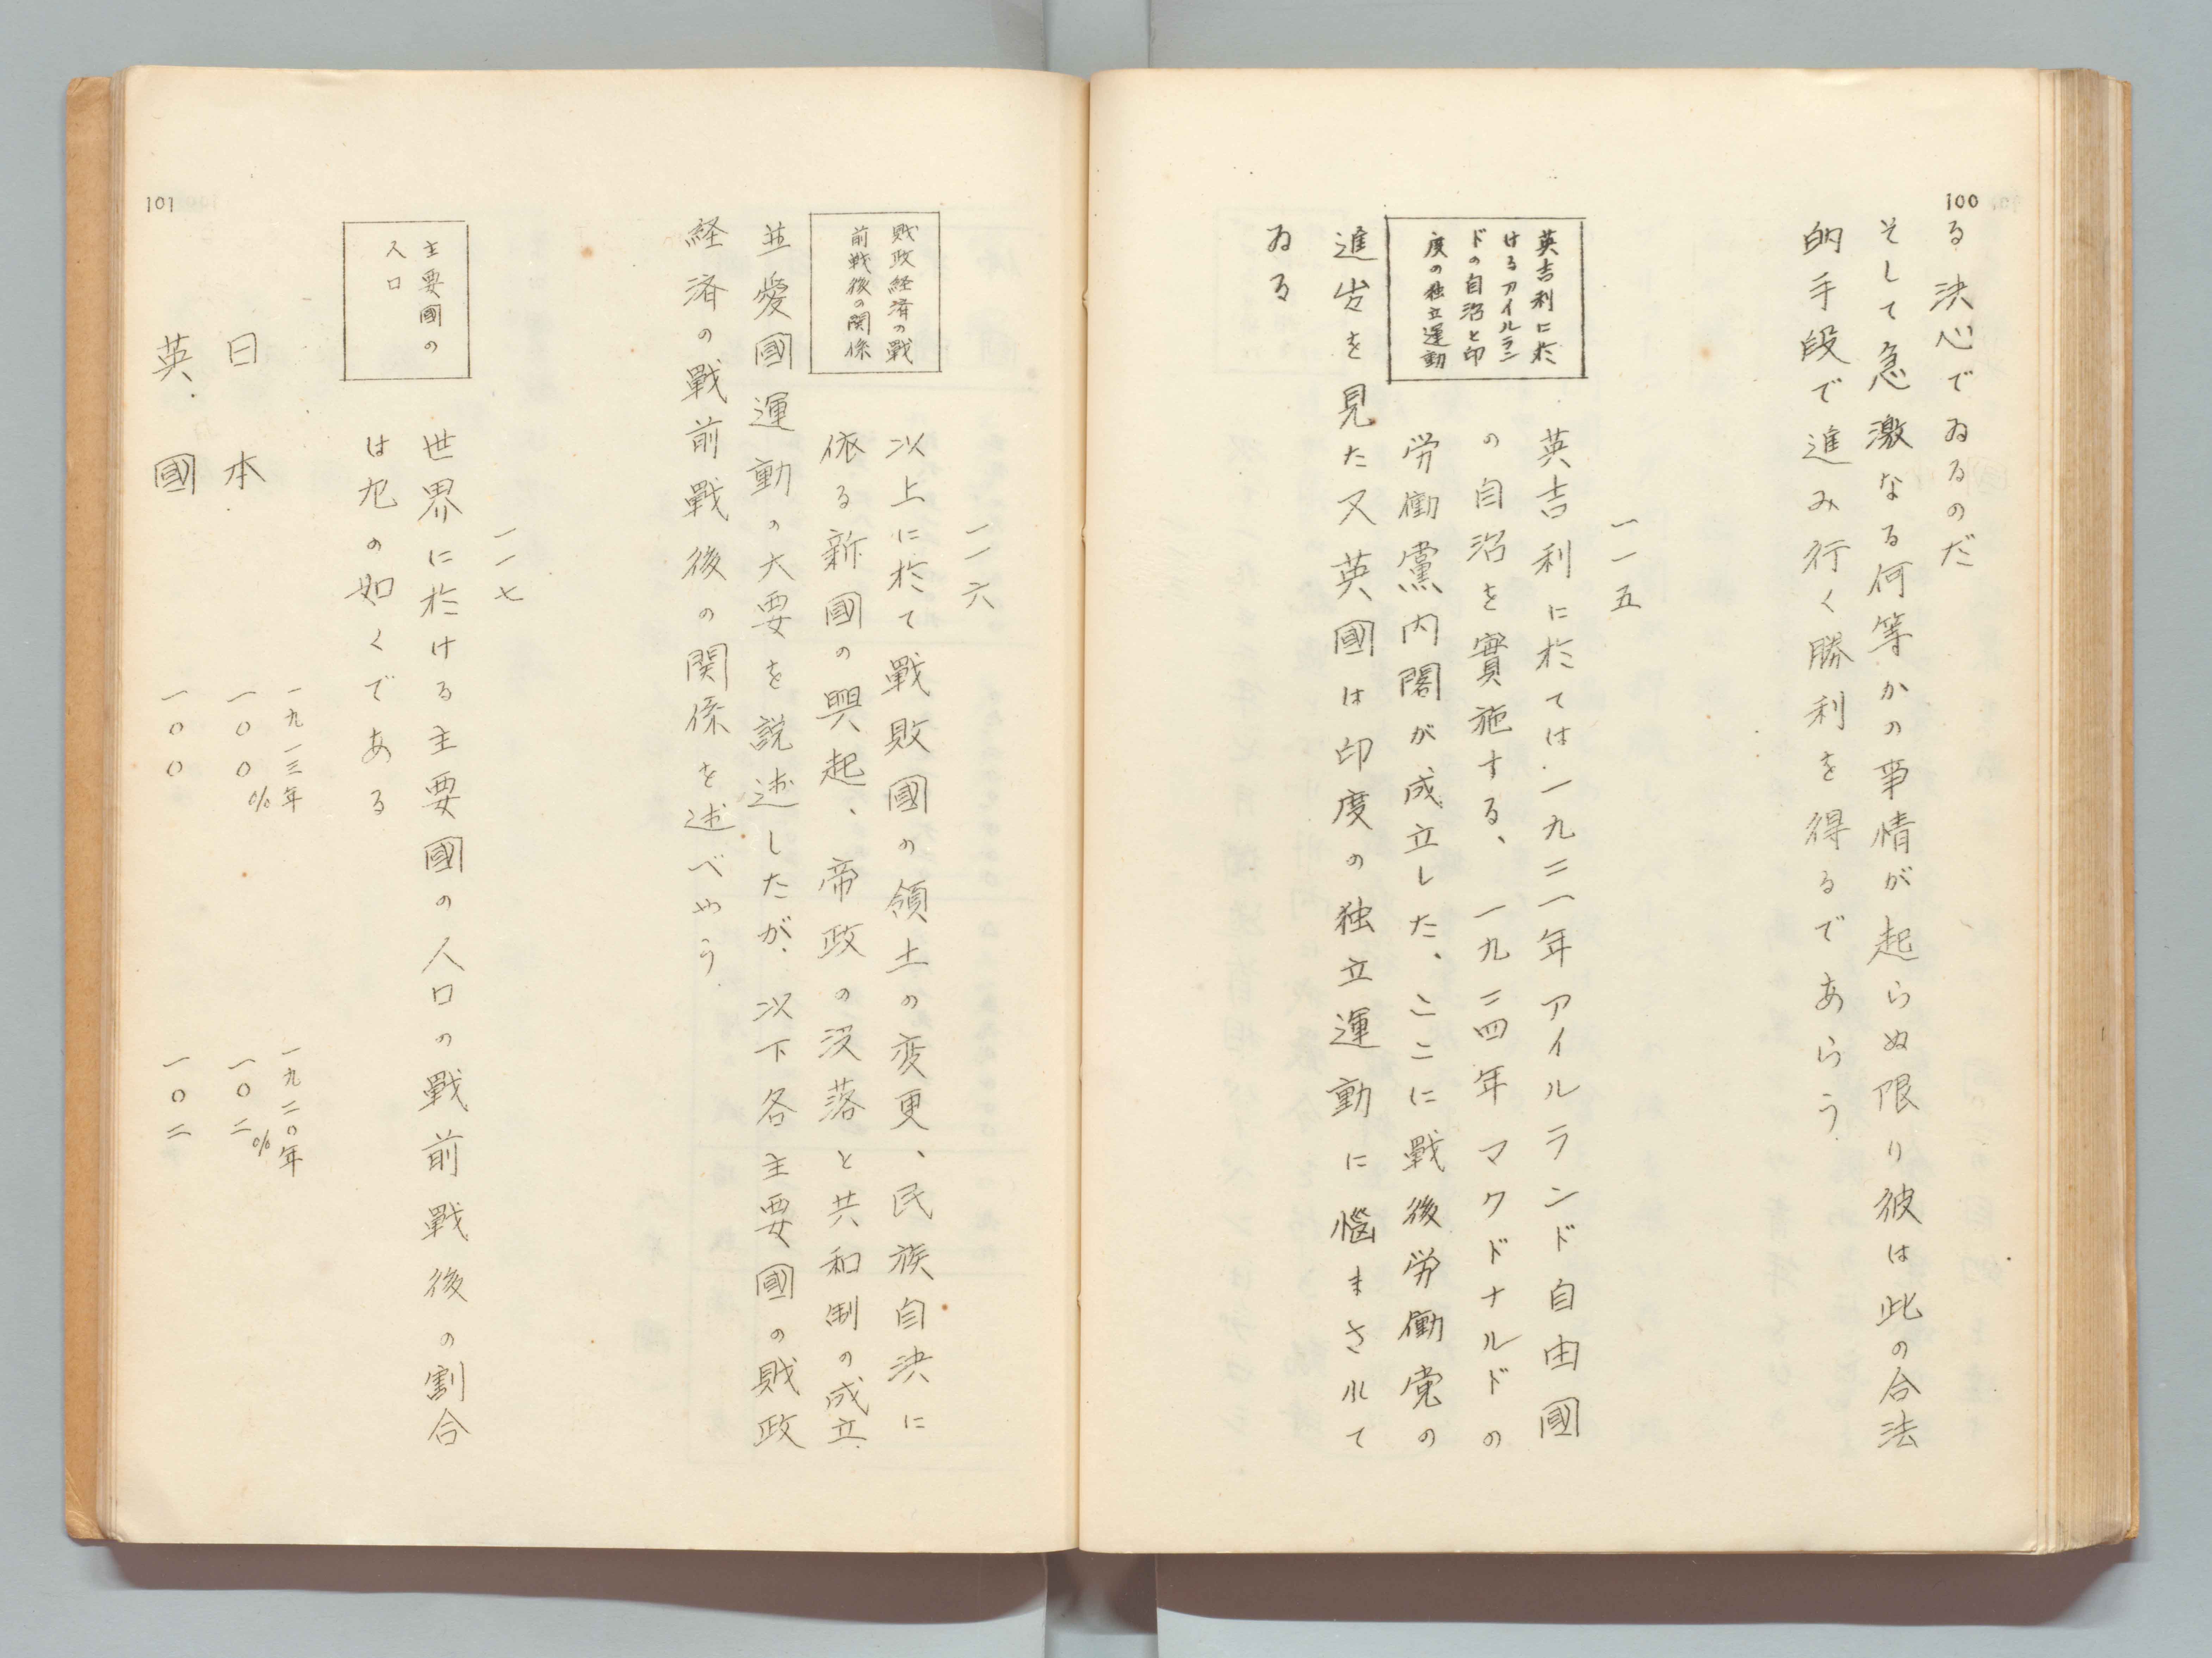 100
る決心でゐるのだ
そして急激なる何等かの事情が起らぬ限り彼は此の合法
的手段で進み行く勝利を得るであらう.
一一五
英吉利に於
けるアイルラン
ドの自治と印
度の独立運動
英吉利に於ては一九二一年アイルランド自由國
の自治を實施する、一九二四年マクドナルドの
労働黨内閣が成立した、ここに戰後労働党の
進出を見た又英國は印度の独立運動に惱まされて
ゐる
一一六
財政経済の戰
前戰後の関係
以上に於て戰敗國の領土の変更、民族自決に
依る新國の興起、帝政の没落と共和制の成立
並愛國運動の大要を説述したが、以下各主要國の財政
経済の戰前戰後の関係を述べやう.
一一七
主要國の
人口
世界に於ける主要國の人口の戰前戰後の割合
は左の如くである
一九一三年 一九二〇年
日本 一〇〇% 一〇二%
英國 一〇〇 一〇二
101